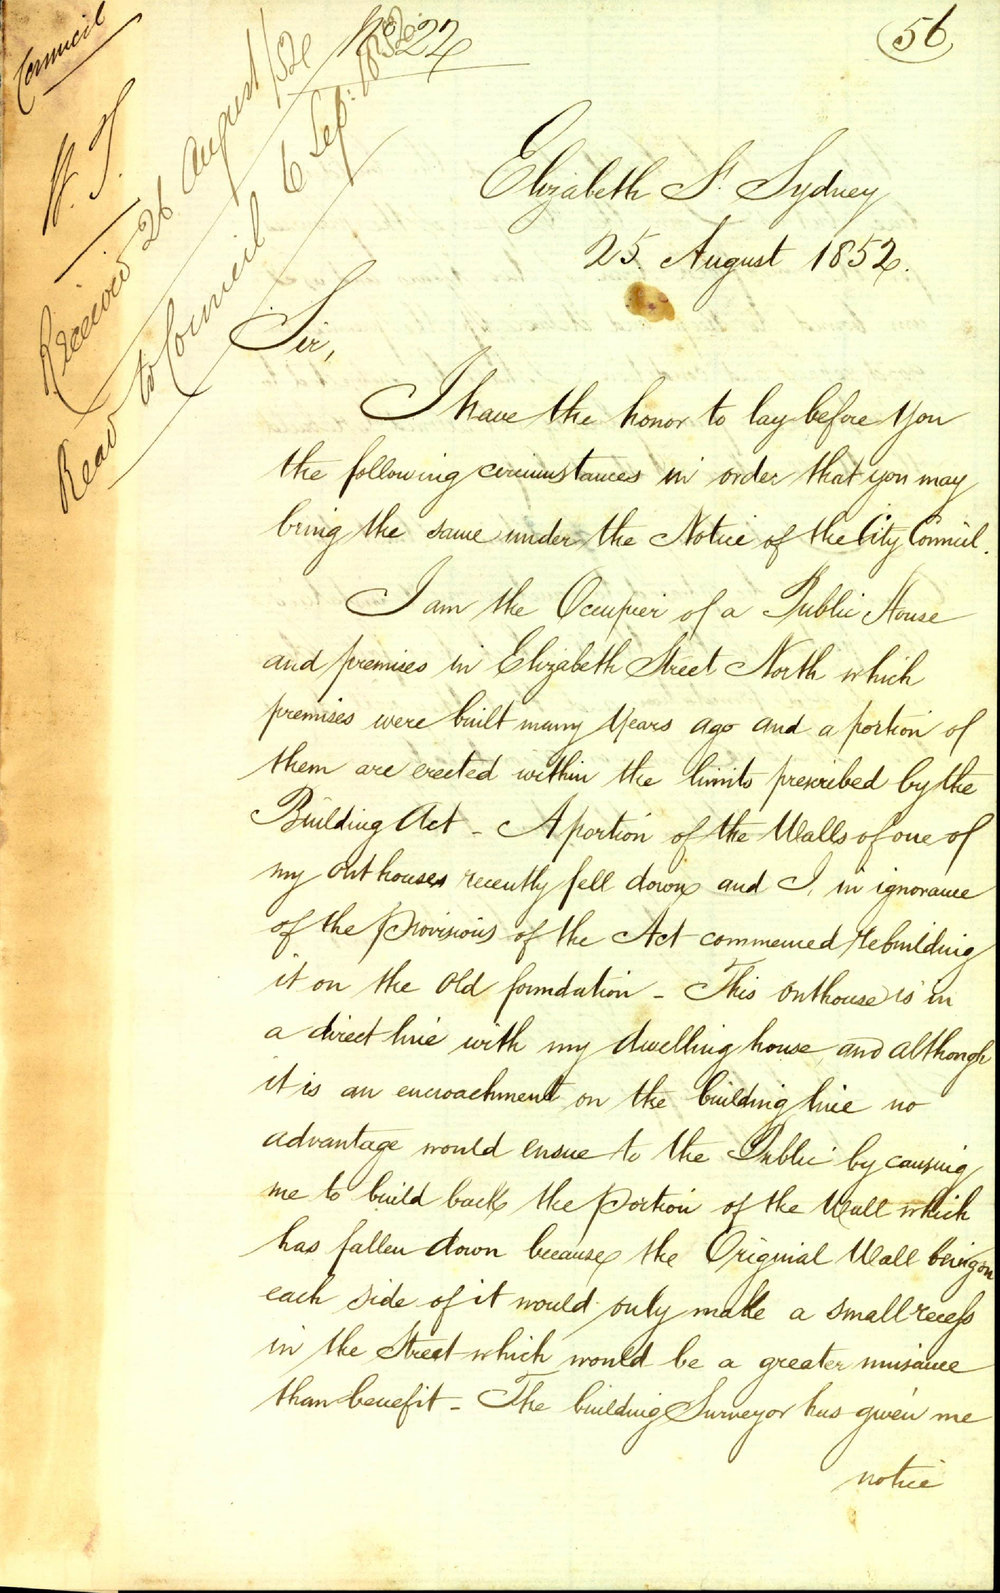 Council
W. T.
Received 26 August /52
Read to Council 6 Sep: 1852
No. 22
56
Elizabeth St. Sydney
25. August 1852.
Sir,
I have the honor to lay before you
the following circumstances in order that you may
bring the same under the Notice of the City Council.
I am the Occupier of a Public House
and premises in Elizabeth Street North which
premises were built many years ago and a portion of
them are erected within the limits prescribed by the
Building Act - A portion of the Walls of one of
my outhouses recently fell down and I, in ignorance
of the Provisions of the Act commenced rebuilding
it on the old foundation - This outhouse is in
a direct line with my dwelling house, and although
it is an encroachment on the building line no
advantage would ensue to the Public by causing
me to build back the portion of the Wall which
has fallen down because the Original Wall being on
each side of it would only make a small recess
in the Street which would be a greater nuisance
than benefit - The building Surveyor has given me
notice